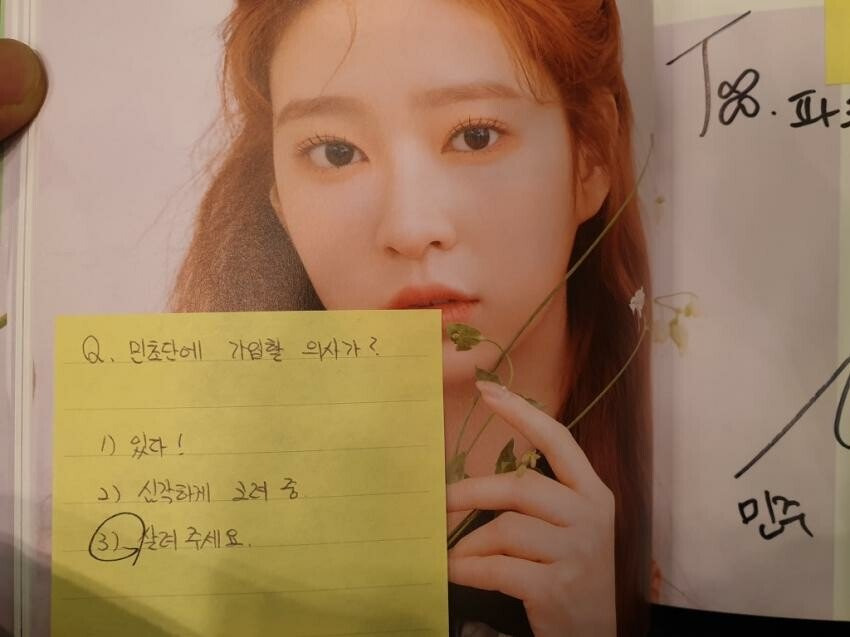 Q. 민초단에 가입할 의사가?
1) 있다!
2) 심각하게 고려 중.
3) 살려 주세요.
To.
민주